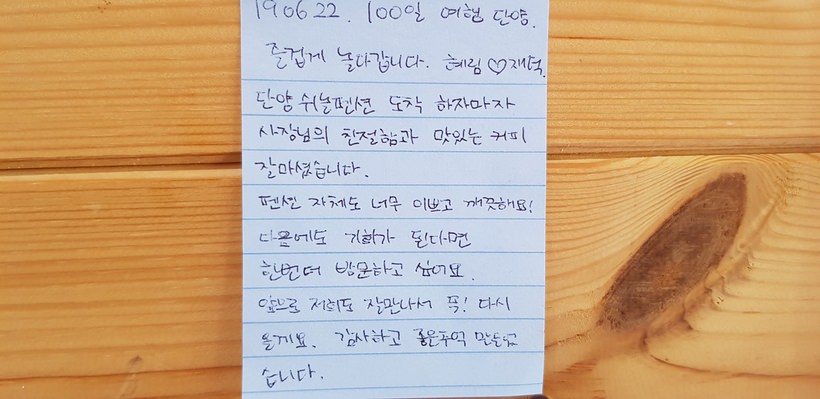 190622. 100일 여행 단양.
즐겁게 놀다갑니다. 혜림♡재덕.
단양 쉬눌펜션 도착 하자마자
사장님의 친절함과 맛있는 커피
잘마셨습니다.
펜션 자체도 너무 이쁘고 깨끗해요!
다음에도 기회가 된다면
한번더 방문하고 싶어요.
앞으로 저희도 잘만나서 꼭! 다시
올게요. 감사하고 좋은추억 만든고
습니다.